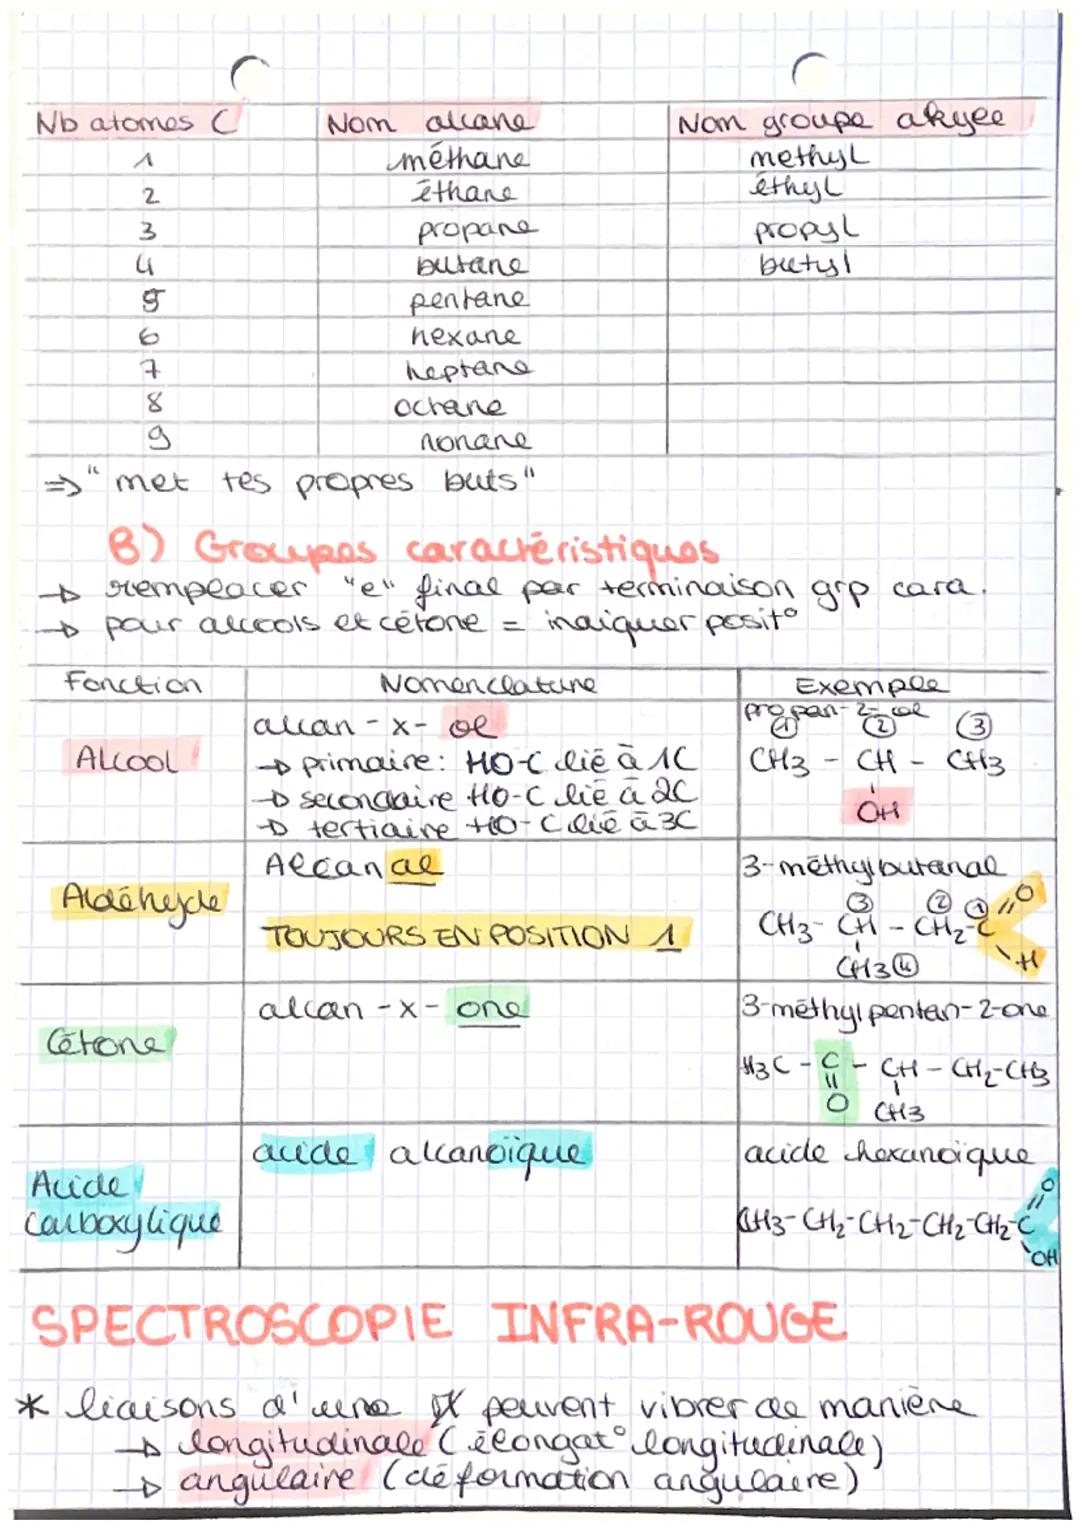 Nb atomes C Nom alcane Nom groupe alkyle
1 méthane methyl
2 éthane éthyl
3 propane propyl
4 butane butyl
5 pentane
6 hexane
7 heptane
8 octane
9 nonane
=> "met tes propres buts"
B) Groupes caractéristiques
→ remplacer "e" final par terminaison grp cara.
→ pour alcools et cétone = indiquer posit°
Fonction Nomenclature Exemple
Alcool
alcan - x - ol
→ primaire: HO-C lié à 1C
→ secondaire HO-C lié à 2C
→ tertiaire HO-C lié à 3C
propan-2-ol
① ② ③
CH3 - CH - CH3
OH
Aldéhyde
Alcanal
TOUJOURS EN POSITION 1
3-méthylbutanal
③ ② ① O
CH3 - CH - CH2 - C
CH3 ④ H
Cétone
alcan - x - one
3-méthylpentan-2-one
H3C - C - CH - CH2 - CH3
O CH3
Acide
Carboxylique
acide alcanoïque
acide hexanoïque
O
CH3-CH2-CH2-CH2-CH2-C
OH
SPECTROSCOPIE INFRA-ROUGE
* liaisons d'une peuvent vibrer de manière
→ longitudinale (élongat° longitudinale)
→ angulaire (déformation angulaire)